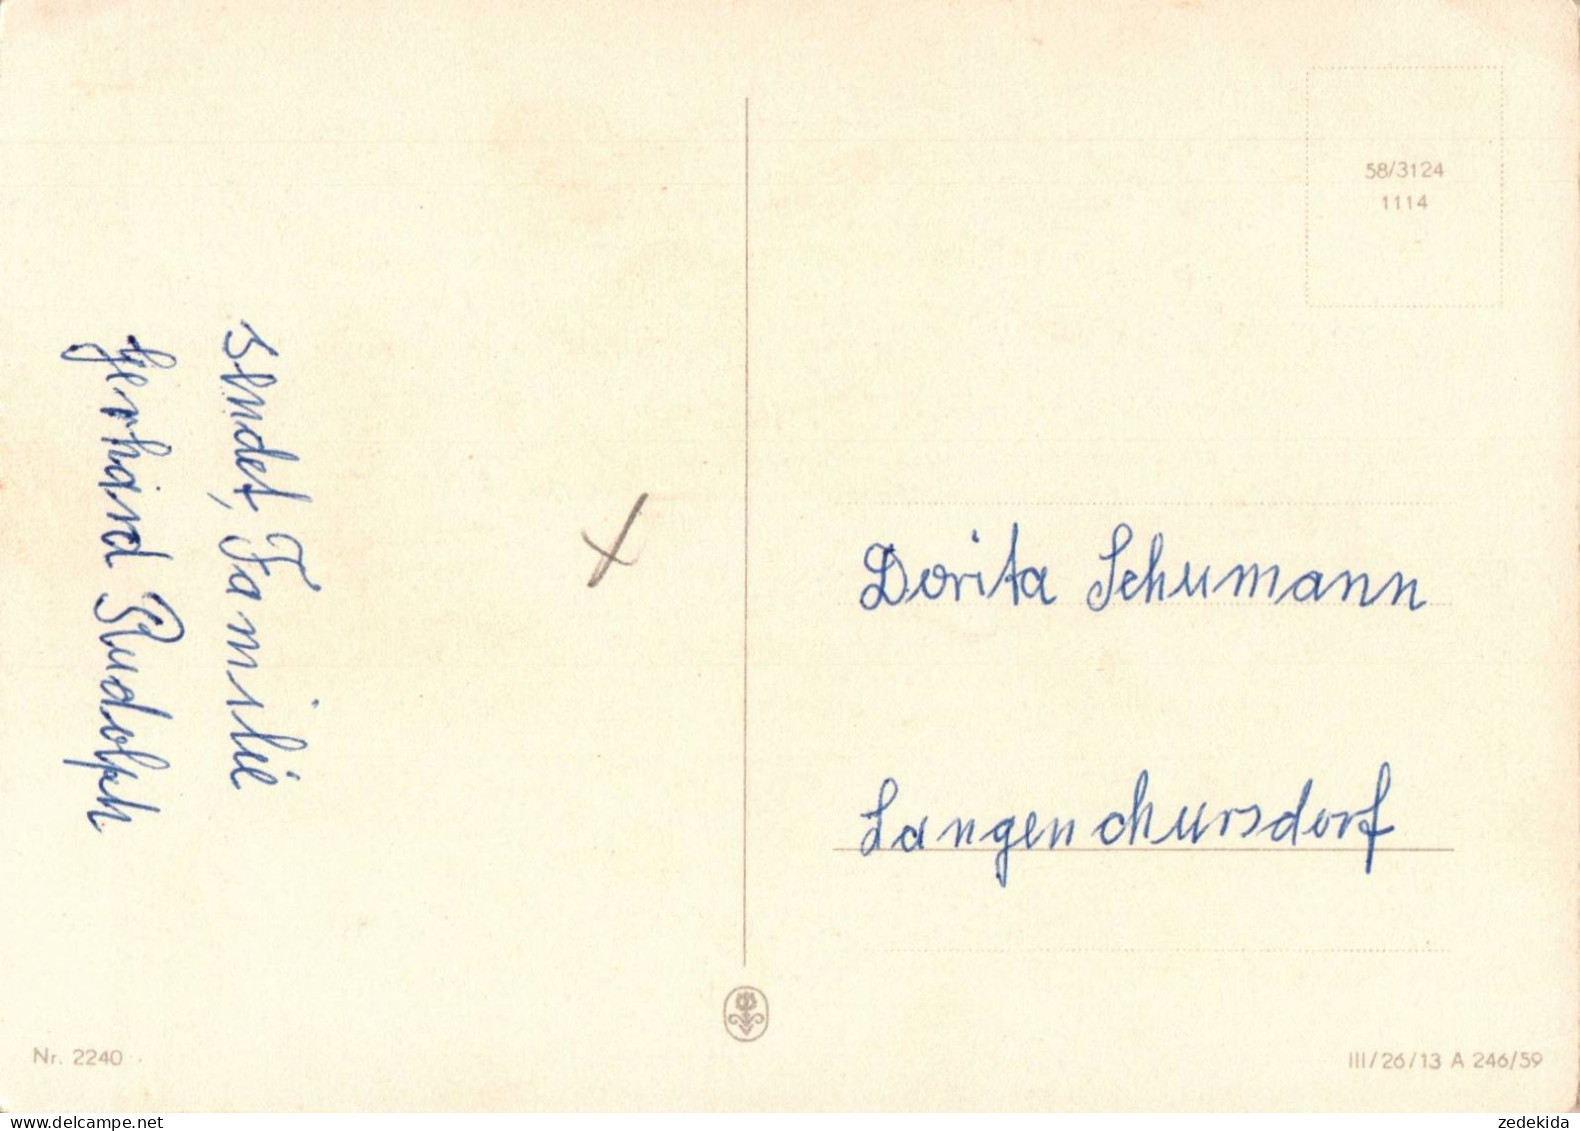 sendet, Familie
Gerhard Rudolph
58/3124
1114
Dorita Schumann
Langenchursdorf
Nr. 2240
III/26/13 A 246/59
www.delcampe.net
zedekida